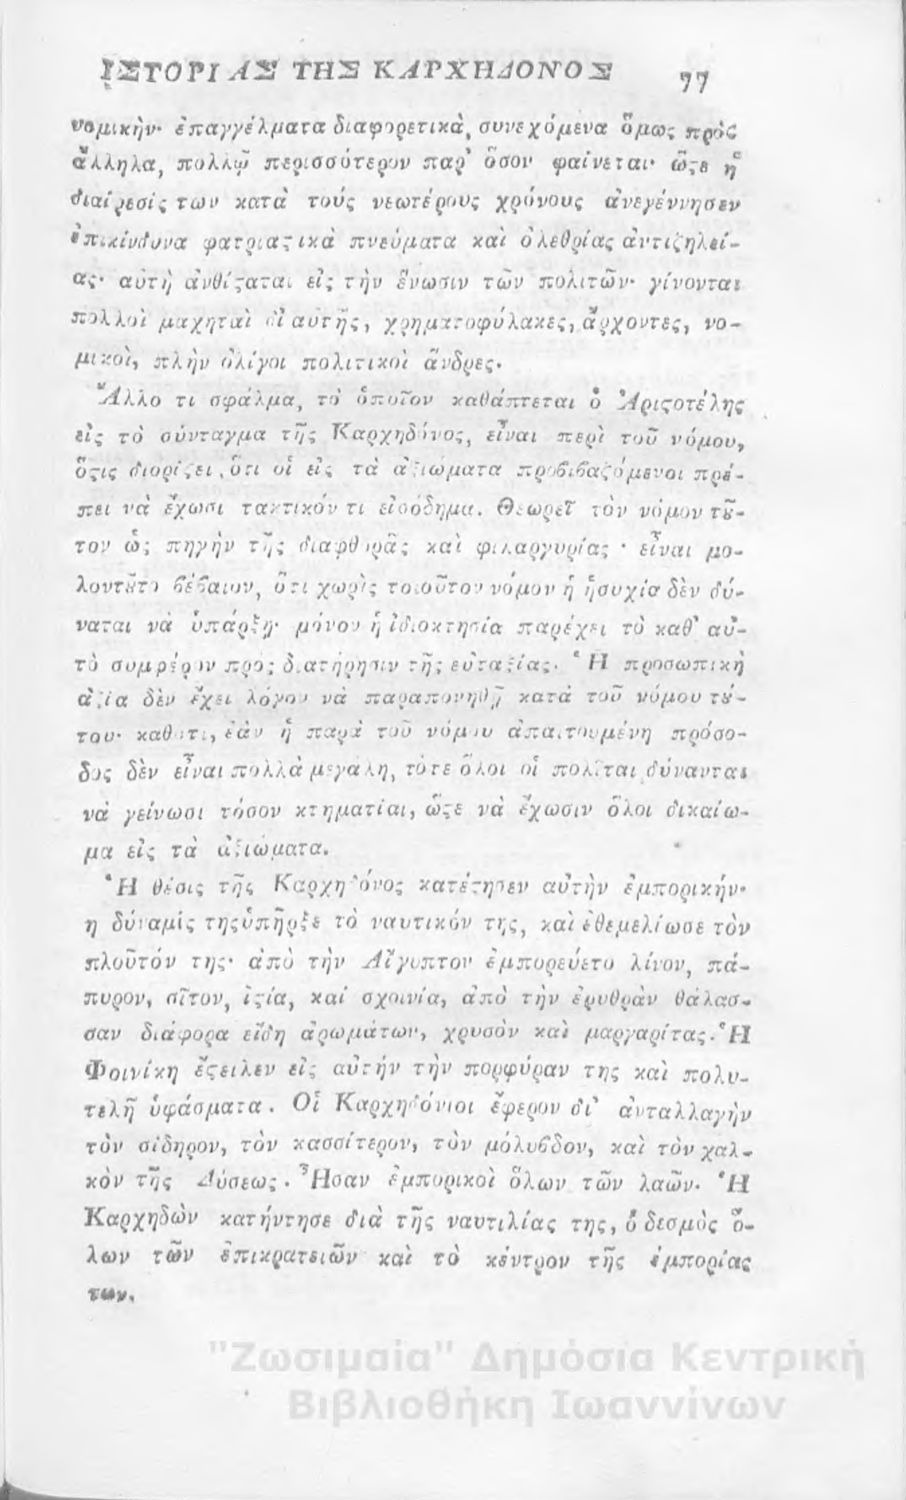 ΙΣΤΟΡΙΑΣ ΤΗΣ ΚΑΡΧΗΔΟΝΟΣ 77
νομικήν· ἐπαγγέλματα διαφορετικὰ, συνεχόμενα ὅμως πρὸς
ἄλληλα, πολλῷ περισσότερον παρ' ὅσον φαίνεται· ὥςε ἡ
διαίρεσίς των κατὰ τοὺς νεωτέρους χρόνους ἀνεγέννησεν
ἐπικίνδυνα φατριαςικὰ πνεύματα καὶ ὀλεθρίας ἀντιζηλεί-
ας· αὐτὴ ἀνθίςαται εἰς τὴν ἕνωσιν τῶν πολιτῶν· γίνονται
πολλοὶ μαχηταὶ δι' αὐτῆς, χρηματοφύλακες, ἄρχοντες, νο-
μικοὶ, πλὴν ὀλίγοι πολιτικοὶ ἄνδρες.
Ἄλλο τι σφάλμα, τὸ ὁποῖον καθάπτεται ὁ Ἀριςοτέλης
εἰς τὸ σύνταγμα τῆς Καρχηδόνος, εἶναι περὶ τοῦ νόμου,
ὅςις διορίζει, ὅτι οἱ εἰς τὰ ἀξιώματα προβιβαζόμενοι πρέ-
πει νὰ ἔχωσι τακτικόν τι εἰσόδημα. Θεωρεῖ τὸν νόμον τȣ-
τον ὡς πηγὴν τῆς διαφθορᾶς καὶ φιλαργυρίας · εἶναι μο-
λοντȣτο βέβαιον, ὅτι χωρὶς τοιοῦτον νόμον ἡ ἡσυχία δὲν δύ-
ναται νὰ ὑπάρξῃ· μόνον ἡ ἰδιοκτησία παρέχει τὸ καθ' αὑ-
τὸ συμφέρον πρὸς διατήρησιν τῆς εὐταξίας. Ἡ προσωπικὴ
ἀξία δὲν ἔχει λόγον νὰ παραπονηθῇ κατὰ τοῦ νόμου τȣ́-
του· καθότι, ἐὰν ἡ παρὰ τοῦ νόμου ἀπαιτουμένη πρόσο-
δος δὲν εἶναι πολλὰ μεγάλη, τότε ὅλοι οἱ πολῖται δύνανται
νὰ γείνωσι τόσον κτηματίαι, ὥςε νὰ ἔχωσιν ὅλοι δικαίω-
μα εἰς τὰ ἀξιώματα.
Ἡ θέσις τῆς Καρχηδόνος κατέςησεν αὐτὴν ἐμπορικήν·
η δύναμίς της ὑπῆρξε τὸ ναυτικόν της, καὶ ἐθεμελίωσε τὸν
πλοῦτόν της· ἀπὸ τὴν Αἴγυπτον ἐμπορεύετο λίνον, πά-
πυρον, σῖτον, ἱςία, καὶ σχοινία, ἀπὸ τὴν ἐρυθρὰν θάλασ-
σαν διάφορα εἴδη ἀρωμάτων, χρυσὸν καὶ μαργαρίτας. Ἡ
Φοινίκη ἔςειλεν εἰς αὐτὴν τὴν πορφύραν της καὶ πολυ-
τελῆ ὑφάσματα. Οἱ Καρχηδόνιοι ἔφερον δι' ἀνταλλαγὴν
τὸν σίδηρον, τὸν κασσίτερον, τὸν μόλυβδον, καὶ τὸν χαλ-
κὸν τῆς Δύσεως. Ἦσαν ἐμπορικοὶ ὅλων τῶν λαῶν. Ἡ
Καρχηδὼν κατήντησε διὰ τῆς ναυτιλίας της, ὁ δεσμὸς ὅ-
λων τῶν ἐπικρατειῶν καὶ τὸ κέντρον τῆς ἐμπορίας
των.
"Ζωσιμαία" Δημόσια Κεντρική
Βιβλιοθήκη Ιωαννίνων